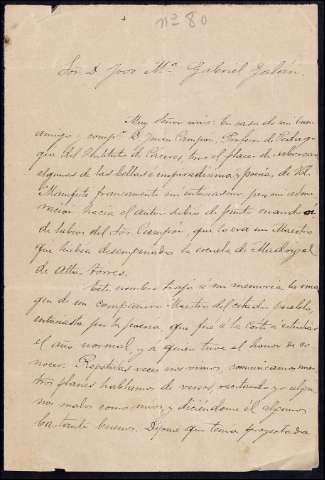 nº 80
Sor. D. José Mª Gabriel Galán.
Muy Señor mio: En casa de un buen
amigo y compº D. Juan Campón, Profesor de Pedago-
gía del Instituto de Cáceres, tuve el placer de saborear
algunas de las bellas poesías de Vd.
Manifesté francamente mi entusiasmo por mi admi-
ración hacia el autor subió de punto cuando oí
de labios del Sor. Campón, que lo era un Maestro
que había desempeñado la escuela de Madrigal
de Altas Torres.
Este nombre trajo á mi memoria la ima-
gen de un compañero Maestro
entusiasta por la poesía, que fué á la Corte á estudiar
el año normal, y á quien tuve el honor de co-
nocer. Repetidas veces nos vimos, comunicamos nues-
tros planes hablamos de versos recitando yo algu-
nos malos como mios y diciéndome él algunos
bastante buenos. Díjome que tenía proyectada